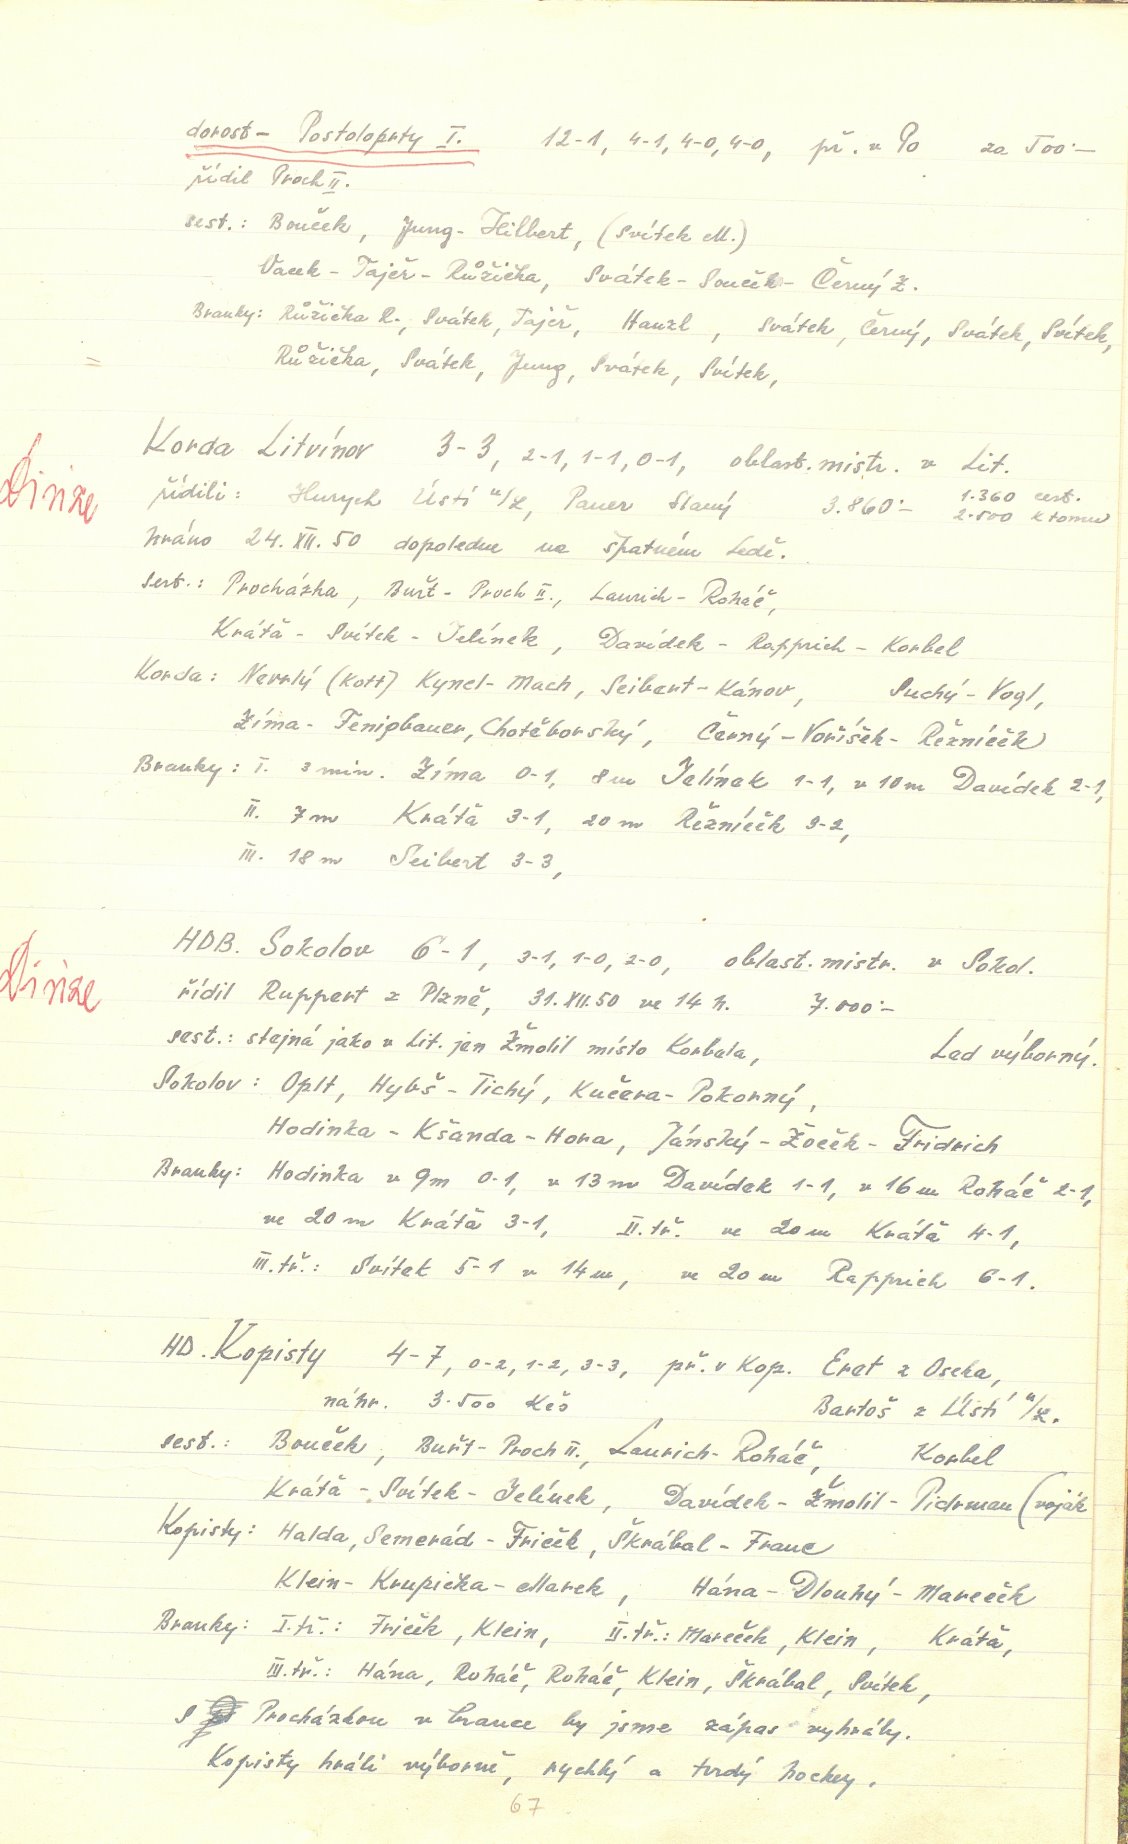 dorost - Postoloprty I. 12-1, 4-1, 4-0, 4-0, př. v Po za 500·-
řídil Proch II.
sest.: Bouček, Jung - Hilbert, (Svítek M.)
Vacek - Tajeř - Růžička, Svátek - Souček - Černý Z.
Branky: Růžička R., Svátek, Tajeř, Hanzl, Svátek, Černý, Svátek, Svítek,
Růžička, Svátek, Jung, Svátek, Svítek,
Korda Litvínov 3-3, 2-1, 1-1, 0-1, oblast. mistr. v Lit.
Divize
řídili: Hurych Ústí n/L, Pauer Slaný 3.860·- 1.360 cest.
2.500 k tomu
hráno 24. XII. 50 dopoledne na špatném ledě.
sest.: Procházka, Buřt - Proch II., Laurich - Roháč,
Krátă - Svítek - Jelínek, Davídek - Rapprich - Korbel
Korda: Nevrlý (Kott) Kynel - Mach, Seibert - Kánov, Suchý - Vogl,
Zíma - Fenigbauer, Chotěborský, Černý - Voříšek - Řežníček
Branky: I. 3 min. Zíma 0-1, 8m Jelínek 1-1, v 10m Davídek 2-1,
II. 7m Krátă 3-1, 20m Řežníček 3-2,
III. 18m Seibert 3-3,
HDB. Sokolov 6-1, 3-1, 1-0, 2-0, oblast. mistr. v Sokol.
Divize
řídil Ruppert z Plzně, 31. XII. 50 ve 14 h. 7.000·-
sest.: stejná jako v Lit. jen Žmolil místo Korbela, Led výborný.
Sokolov: Oplt, Hybš - Tichý, Kučera - Pokorný,
Hodinka - Kšanda - Hora, Jánský - Žoček - Fridrich
Branky: Hodinka v 9m 0-1, v 13m Davídek 1-1, v 16m Roháč 2-1,
ve 20m Krátă 3-1, II. tř. ve 20m Krátă 4-1,
III. tř.: Svítek 5-1 v 14m, ve 20m Rapprich 6-1.
HD. Kopisty 4-7, 0-2, 1-2, 3-3, př. v Kop. Eret z Oseka,
náhr. 3.500 Kčs Bartoš z Ústí n/L.
sest.: Bouček, Buřt - Proch II., Laurich - Roháč, Korbel
Krátă - Svítek - Jelínek, Davídek - Žmolil - Pidrman (voják
Kopisty: Halda, Semerád - Friček, Škrábal - Franc
Klein - Krupička - Marek, Hána - Dlouhý - Mareček
Branky: I. tř.: Friček, Klein, II. tř.: Mareček, Klein, Krátă,
III. tř.: Hána, Roháč, Roháč, Klein, Škrábal, Svítek,
S Procházkou v brance by jsme zápas vyhrály.
Kopisty hráli výborně, rychlý a tvrdý hockey.
67